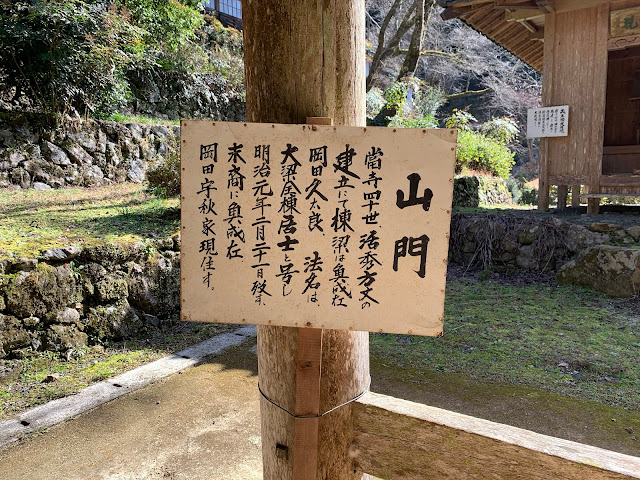 山門
當寺四十世、活秀方丈の
建立にて棟梁は奥成在
岡田久太良、法名は、
大梁全棟居士と号し
明治元年一月二十一日歿す、
末裔に奥成在
岡田守秋家現住す。